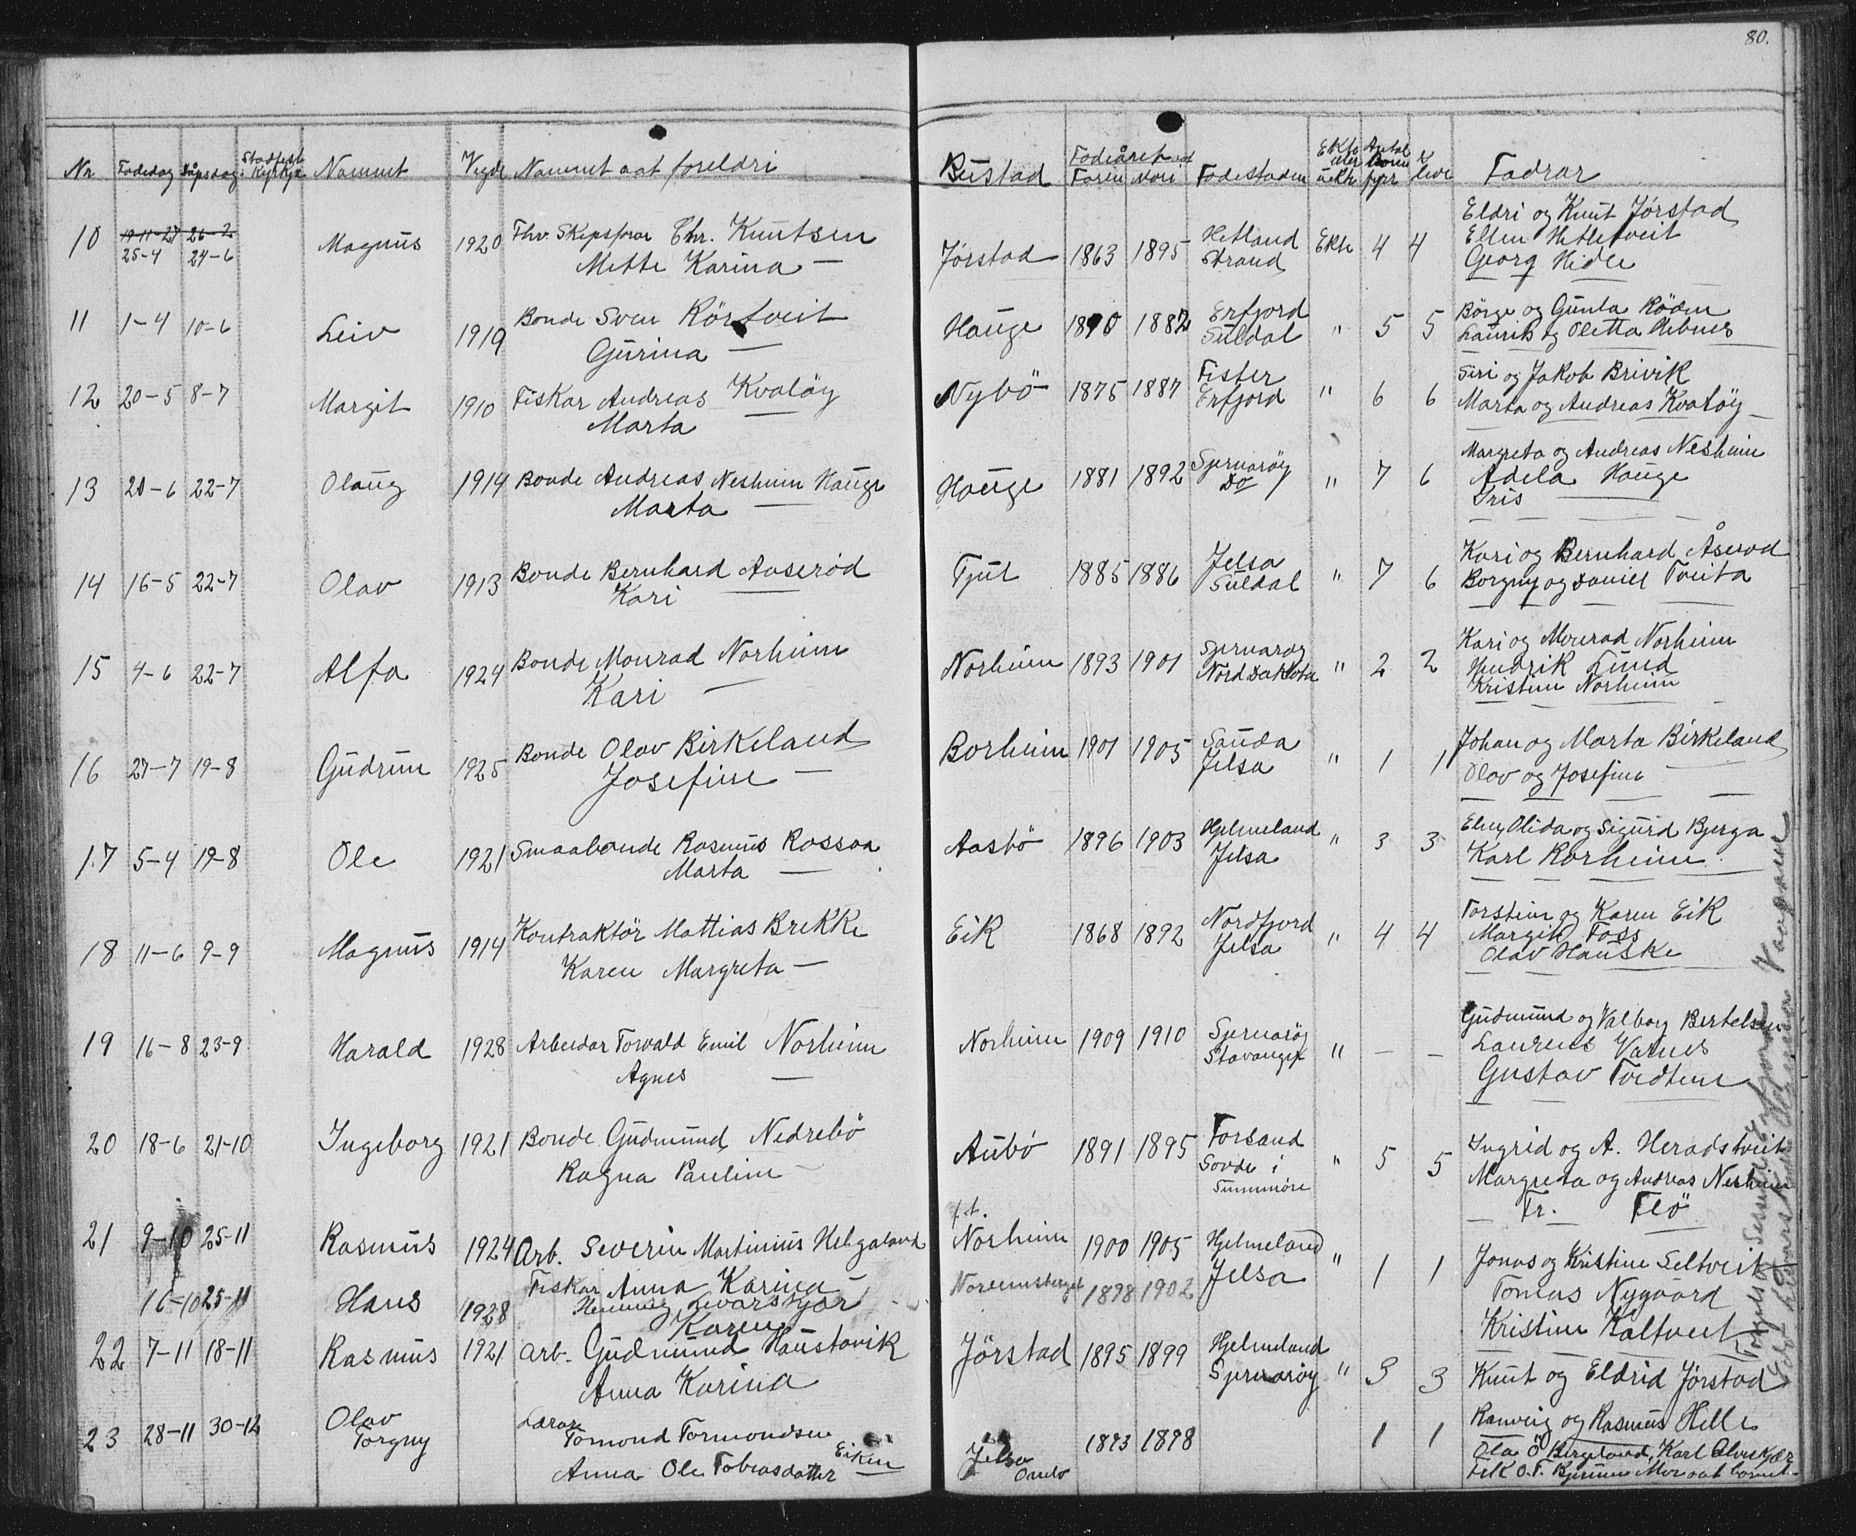 80.
Nr Fødedag Dåpsdag Stadfest i Kyrkja Namnet Vigde Namnet aat foreldri Bustad Fødeåret aat Faren Mori Fødestaden Ekte eller uekte Antal born fyr & live Fadrar
10 19-11-27 26-2 Magnus 1920 Fhv. Skipsførar Chr. Knutsen Jørstad 1863 1895 Hetland Ekte 4 4 Eldri og Knut Jørstad
25-4 24-6 Mette Karina — Strand Ellen Hetletveit
Georg Hidle
11 1-4 10-6 Leiv 1919 Bonde Sven Rörtveit Hauge 1890 1882 Erfjord " 5 5 Börge og Gunla Röden
Gurina — Suldal Laurits og Oletta Hebnes
12 20-5 8-7 Margit 1910 Fiskar Andreas Kvaløy Nybö 1875 1887 Fister " 6 6 Siri og Jakob Brivik
Marta Erfjord Marta og Andreas Kvaløy
13 21-6 22-7 Olaug 1914 Bonde Andreas Nesheim Hauge Hauge 1881 1892 Sjernarøy " 7 6 Margreta og Andreas Nesheim
Marta — Do Adela Hauge
Iris
14 16-5 22-7 Olav 1913 Bonde Bernhard Aaserød Tjul 1885 1886 Jelsa " 7 6 Kari og Bernhard Åserød
Kari Suldal Borgny og Daniel Tveita
15 4-6 22-7 Alfa 1924 Bonde Monrad Norheim Norheim 1893 1901 Sjernarøy " 2 2 Kari og Monrad Norheim
Kari — Nord Dakota Hendrik Lund
Kristine Norheim
16 27-7 19-8 Gudrun 1925 Bonde Olav Birkeland Borheim 1901 1905 Sauda " 1 1 Johan og Marta Birkeland
Josefine — Jelsa Olav og Josefine —
17 5-4 19-8 Ole 1921 Smaabonde Rasmus Rossaa Aasbø 1896 1903 Hjelmeland " 3 3 Elney Olida og Sigurd Bjerga
Marta — Jelsa Karl Rorheim
18 11-6 9-9 Magnus 1914 Kontraktør Mattias Brekke Eik 1868 1892 Nordfjord " 4 4 Torstein og Karen Eik
Karen Margreta — Jelsa Margith Foss
Olav Hauske
19 16-8 23-9 Harald 1928 Arbeidar Torvald Emil Norheim Norheim 1909 1910 Sjernarøy " — — Gudmund og Valborg Bertelsen
Agnes — Stavanger Laurent Varnes
Gustav Tvedten
20 18-6 21-10 Ingeborg 1921 Bonde Gudmund Nedrebö Aubö 1891 1895 Forsand " 5 5 Ingrid og A. Heradstveit
Ragna Pauline — Sovde i Summöre Margreta og Andreas Nesheim
Fr. Flö
21 9-10 25-11 Rasmus 1924 Arb. Severin Martinius Helgaland f.t. Norheim 1900 1905 Hjelmeland " 1 1 Jonas og Kristine Seltveit
Anna Karina — Jelsa Tomas Nygaard
16-10 25-11 Hans 1928 Fiskar Henning Livarskjær 1898 1902 Kristine Kaltveit
Karen
22 7-11 18-11 Rasmus 1921 Arb. Gudmund Haustavik Jørstad 1895 1899 Hjelmeland " 3 3 Knut og Eldrid Jørstad
Anna Karina Sjernarøy
23 28-11 30-12 Olav Torgny Lærar Tormond Tormondsen Jelsa 1893 1898 1 1 Ranveig og Rasmus Helle
Anna Ole Tobiasdatter Eiken Ombo Ola Ö Bergeland, Karl